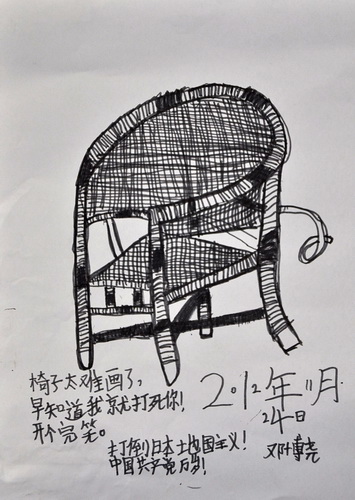 椅子太难画了,
早知道我就打死你!
开个完笔。
打倒日本土地国主义!
中国共产党万岁!
2012年11月
24日